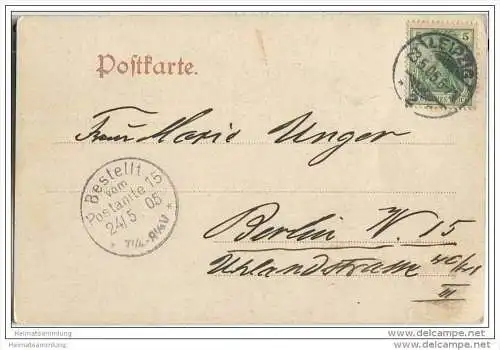 Postkarte.
5
LEIPZIG
5.05
Frau Marie Unger
Bestellt
vom
Postamte 15
24/5 05
7¼-8½V
Berlin W. 15
Uhlandstrasse
III
Heimatsammlung Heimatsammlung